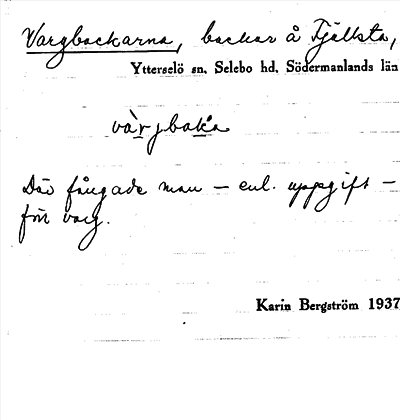 Vargbackarna, backar å Fjällsta,
Ytterselö sn. Selebo hd. Södermanlands län
va̱ṟjbaḵa
Där fångade man – enl. uppgift –
förr varg.
Karin Bergström 1937